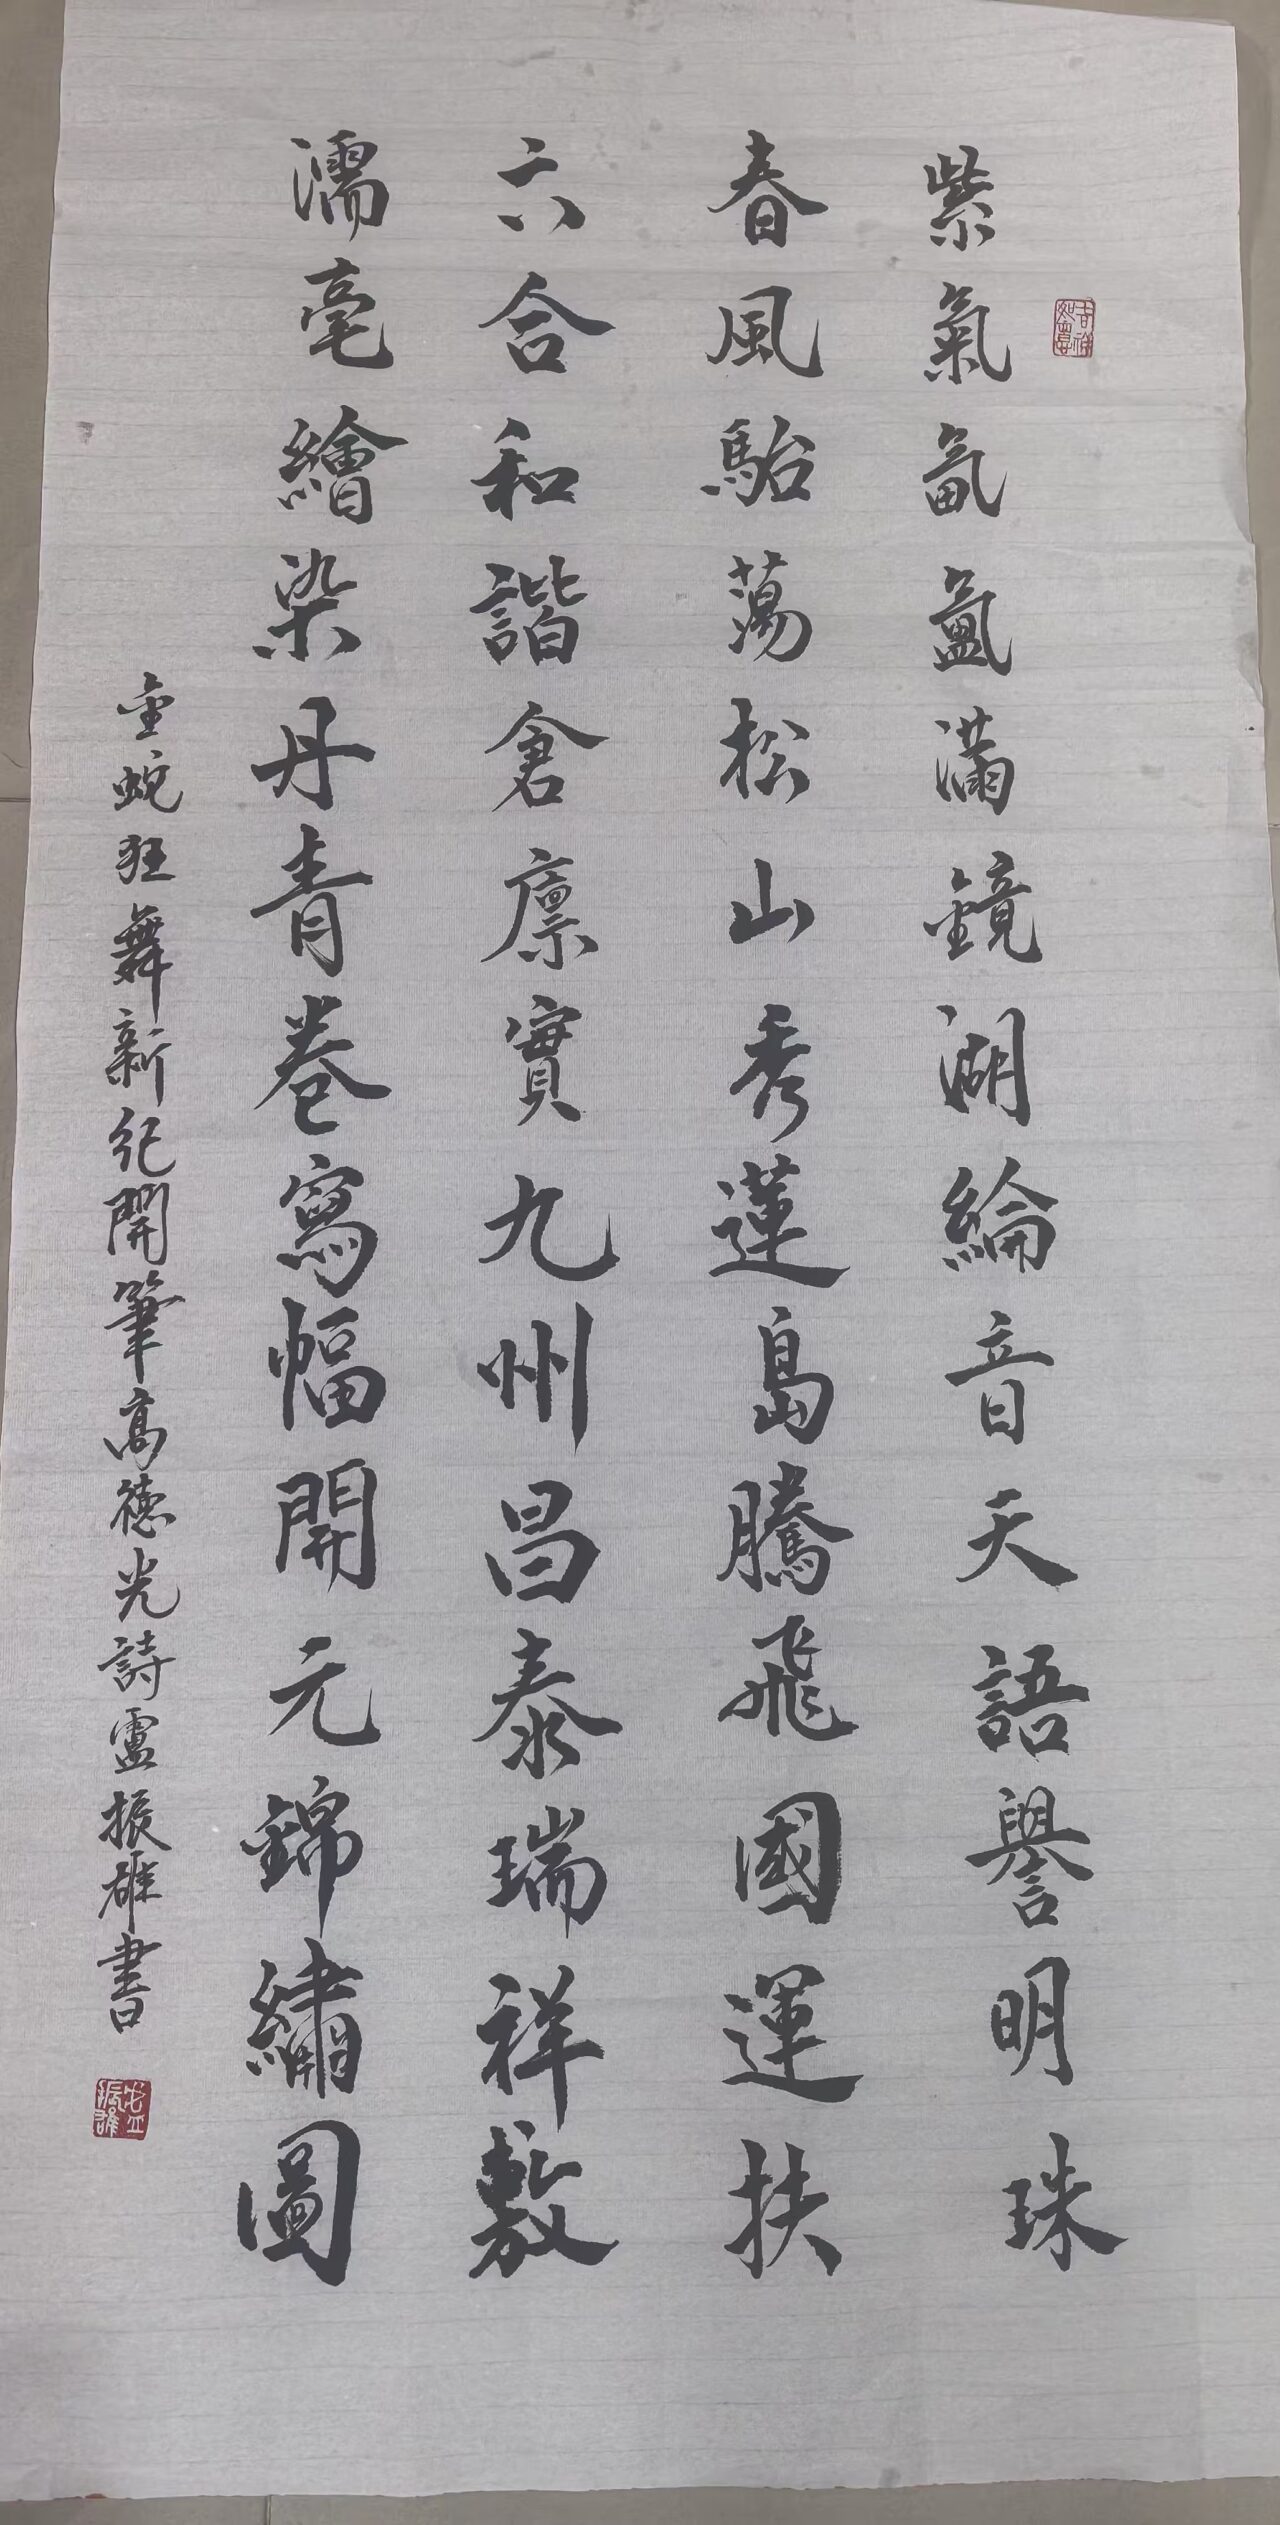 紫氣氤氲滿鏡湖綸音天語譽明珠
春風駘蕩松山秀蓮島騰飛國運扶
六合和諧倉廪實九州昌泰瑞祥敷
濡毫繪染丹青卷寫幅開元錦繡圖
金蛇狂舞新紀開筆高德光詩盧振雄書
吉祥如意